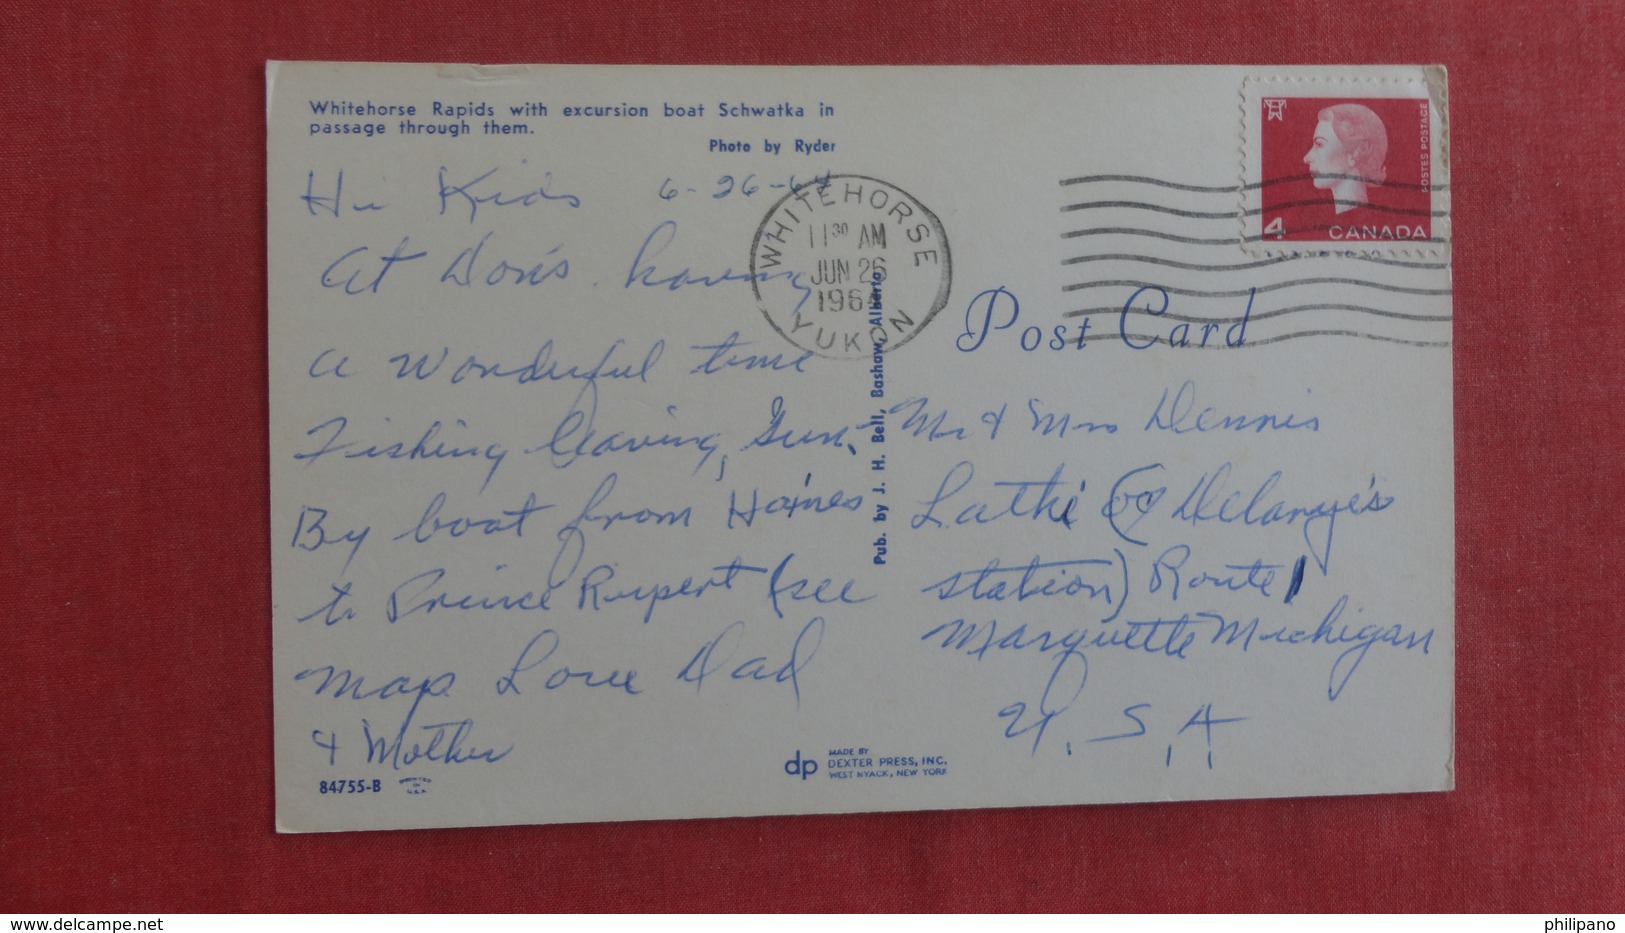 Whitehorse Rapids with excursion boat Schwatka in
passage through them.
Photo by Ryder
Hi Kids 6-26-64
At Don's having
a wonderful time
Fishing leaving Sun.
By boat from Haines
to Prince Rupert (see
map Love Dad
& Mother
84755-B
PRINTED IN U.S.A.
WHITEHORSE
11 30 AM
JUN 26
1964
YUKON
Pub. by J. H. Bell, Bashaw, Alberta
4
POSTES POSTAGE
CANADA
Post Card
Mr & Mrs Dennis
Lathi (% Delanye's
station) Route 1
Marquette Michigan
U.S.A
dp MADE BY
DEXTER PRESS, INC.
WEST NYACK, NEW YORK
www.delcampe.net
philipano